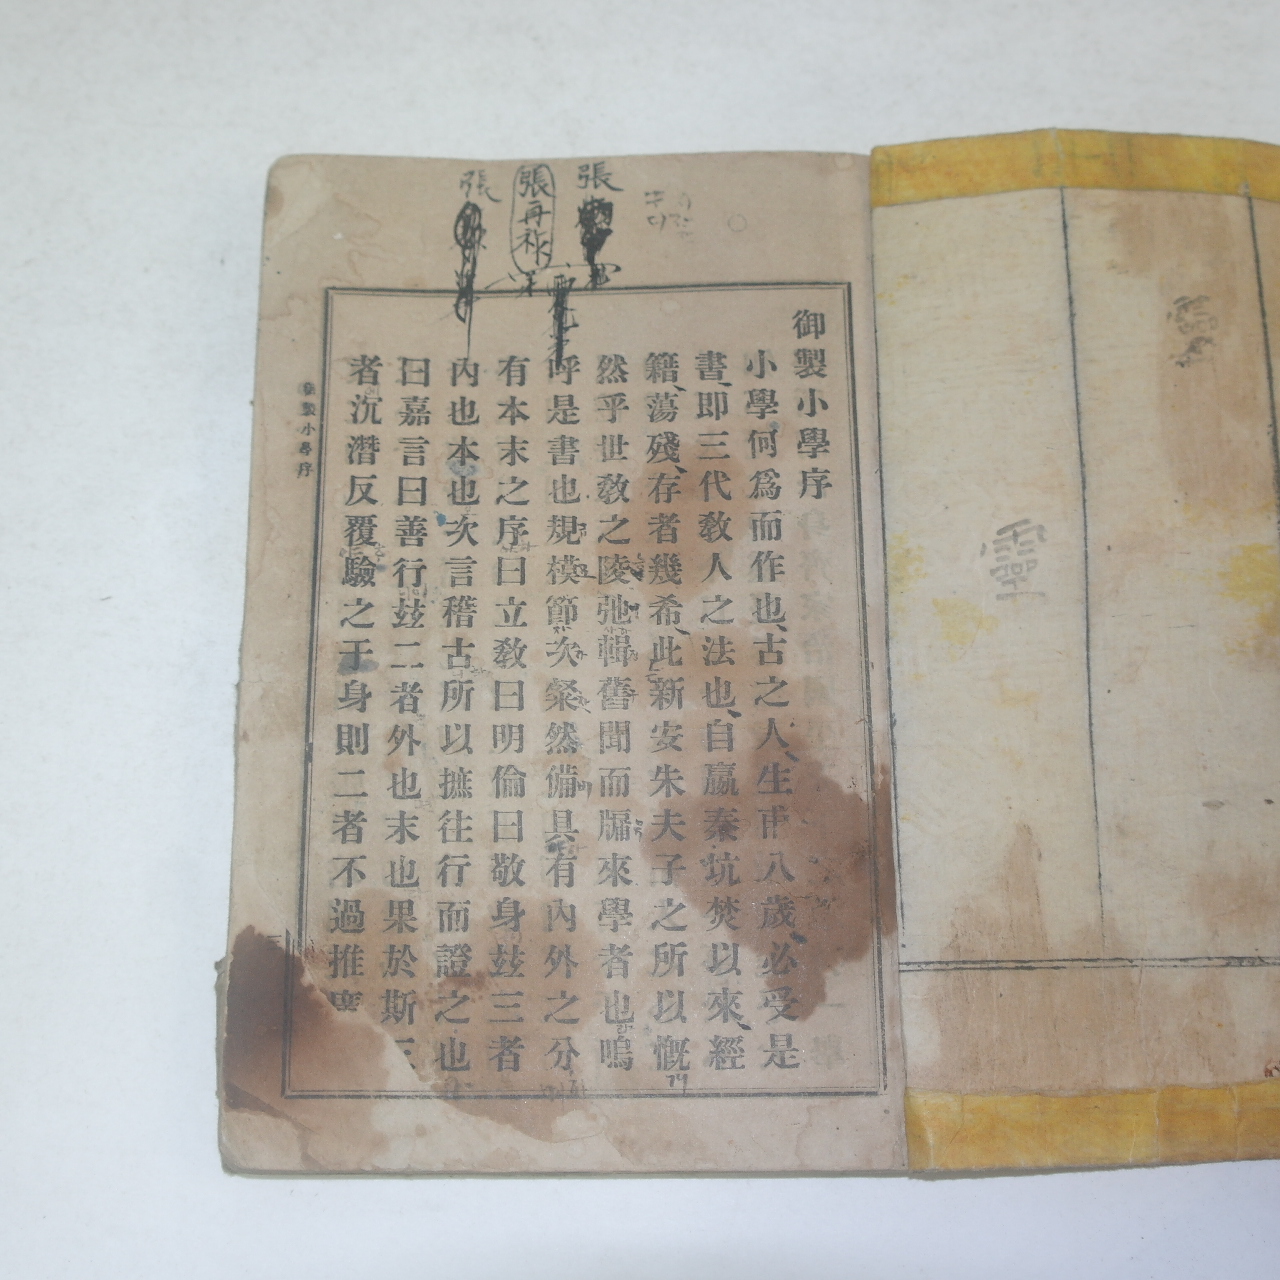 靈
靈
張
張再祚
張
御製小學序
小學何爲而作也古之人生甫八歲必受是
書卽三代敎人之法也自嬴秦坑焚以來經
籍蕩殘存者幾希此新安朱夫子之所以慨
然乎世敎之陵弛輯舊聞而牖來學者也嗚
呼是書也規模節次粲然備具有內外之分
有本末之序曰立敎曰明倫曰敬身玆三者
內也本也次言稽古所以摭往行而證之也
曰嘉言曰善行玆二者外也末也果於斯三
者沉潛反覆驗之于身則二者不過推廣
御製小學序